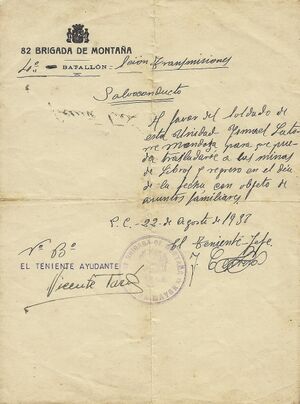 82 BRIGADA DE MONTAÑA
4º BATALLÓN - Sección Transmisiones
Salvoconducto
Al favor del soldado de
esta Unidad Ysmael Lato
rre Mendoza para que pue
da trasladarse a las minas
de Libros y regreso en el dia
de la fecha con objeto de
asuntos familiares
P.C. - 22 de Agosto de 1937
El Teniente-Jefe
Vº Bº
EL TENIENTE AYUDANTE
Vicente
BRIGADA DE MONTAÑA